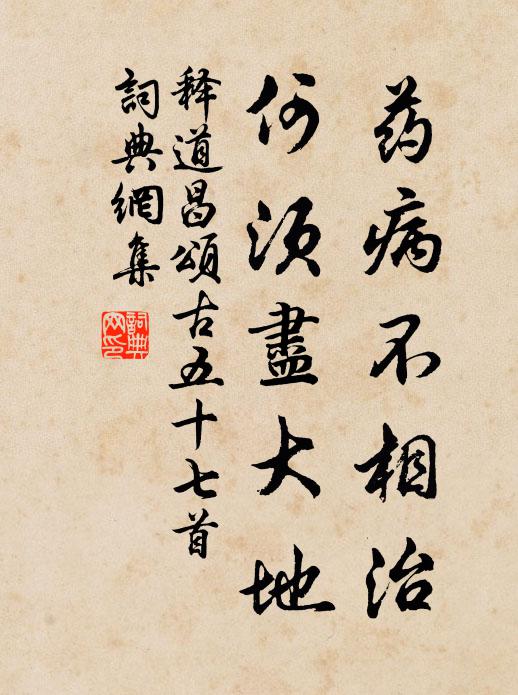 药病不相治
何须盡大地
释道昌頌古五十七首
詞典網集
詞典
网印